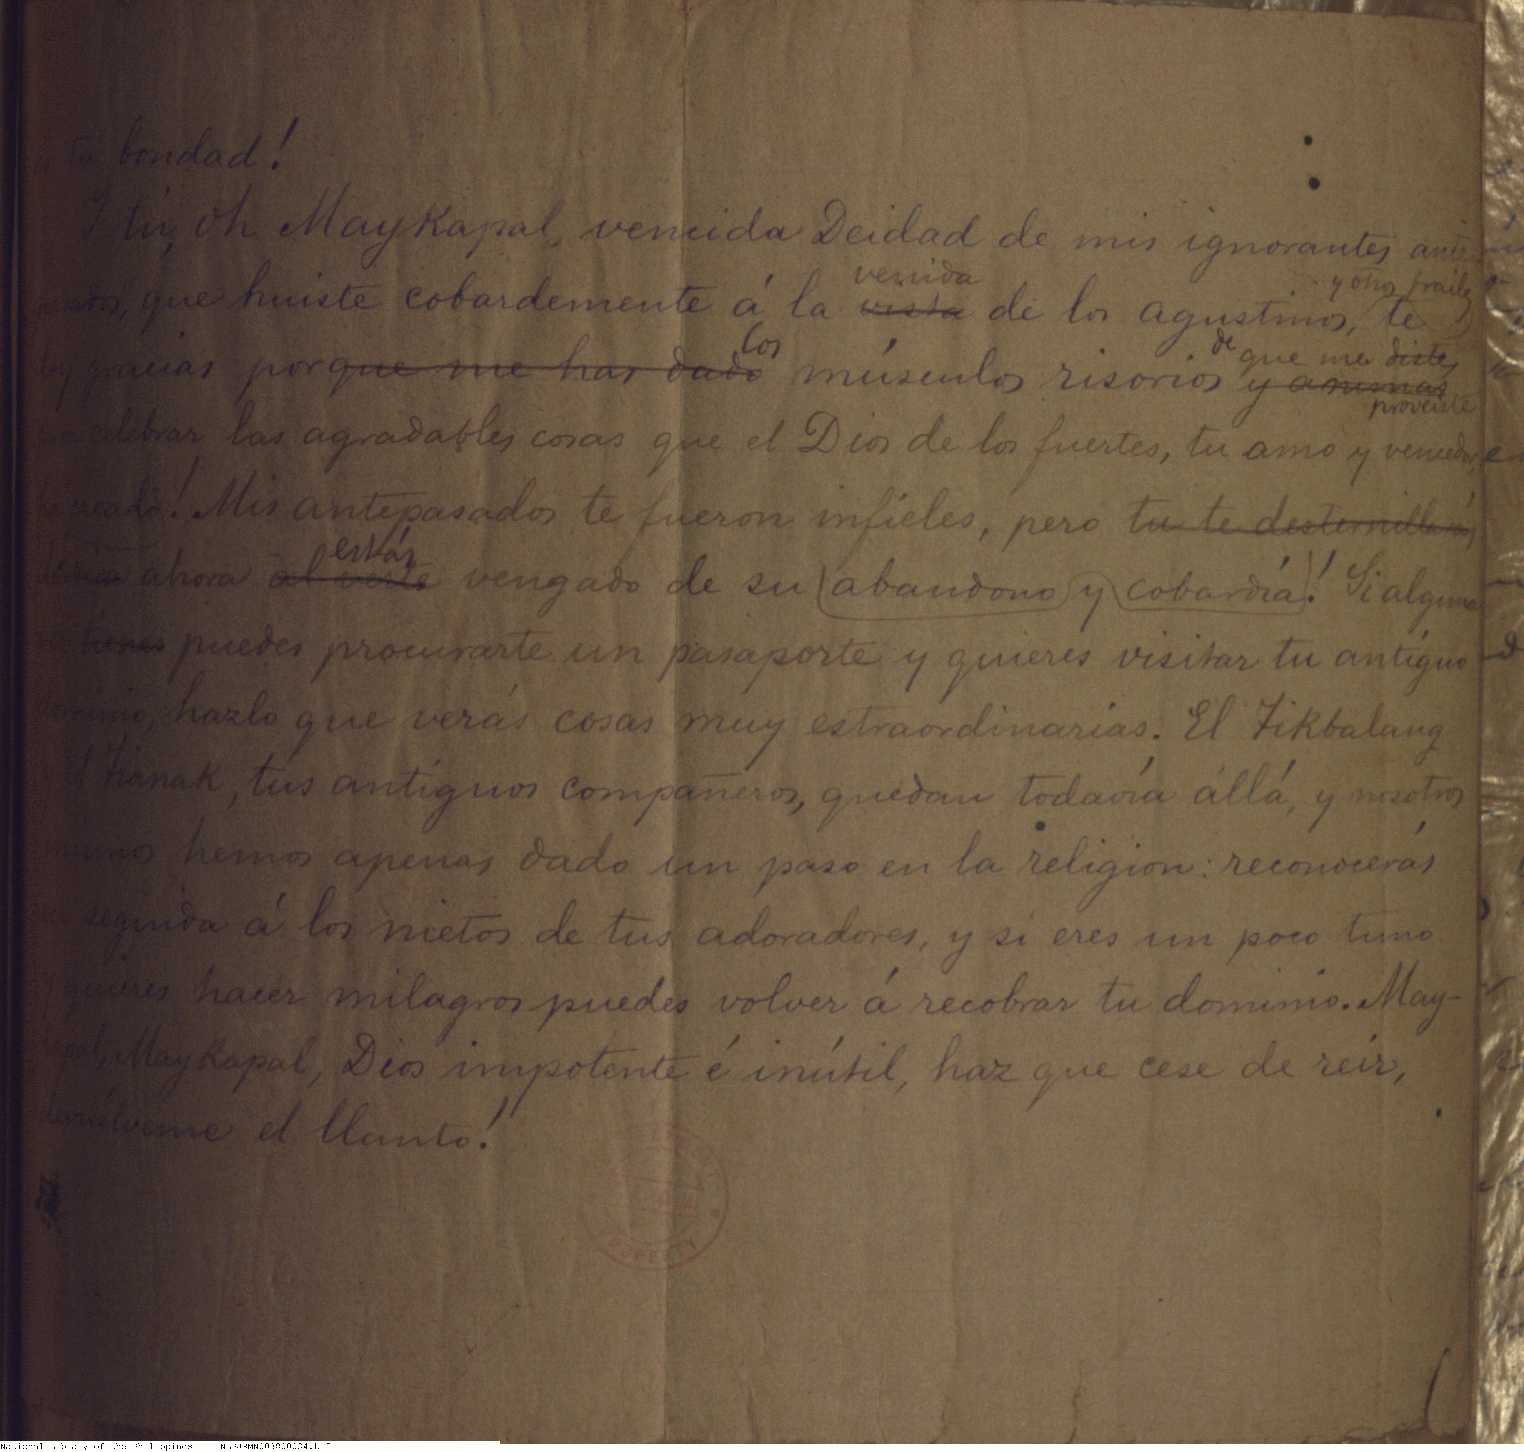 tu bondad!
Y tú, oh MayKapal, vencida Deidad de mis ignorantes ante-
que huiste cobardemente á la vista venida de los agustinos, y otros frailes te
doy gracias porque me has dado los músculos risorios y de que me distes proveiste
para celebrar las agradables cosas que el Dios de los fuertes, tu amo y vencedor,
ha creado! Mis antepasados te fueron infieles, pero tu te desternillarás
ahora al verte estás vengado de su abandono y cobardía! Si alguna
tienes puedes procurarte un pasaporte y quieres visitar tu antíguo
dominio, hazlo que verás cosas muy estraordinarias. El Tikbalang
el Tianak, tus antíguos compañeros, quedan todavía állá, y nosotros
hemos apenas dado un paso en la religion: reconocerás
seguida á los nietos de tus adoradores, y si eres un poco tuno
y quieres hacer milagros puedes volver á recobrar tu dominio. May-
kapal, MayKapal, Dios impotente é inútil, haz que cese de reir,
devuélveme el llanto!
PROPERTY
National Library of the Philippines